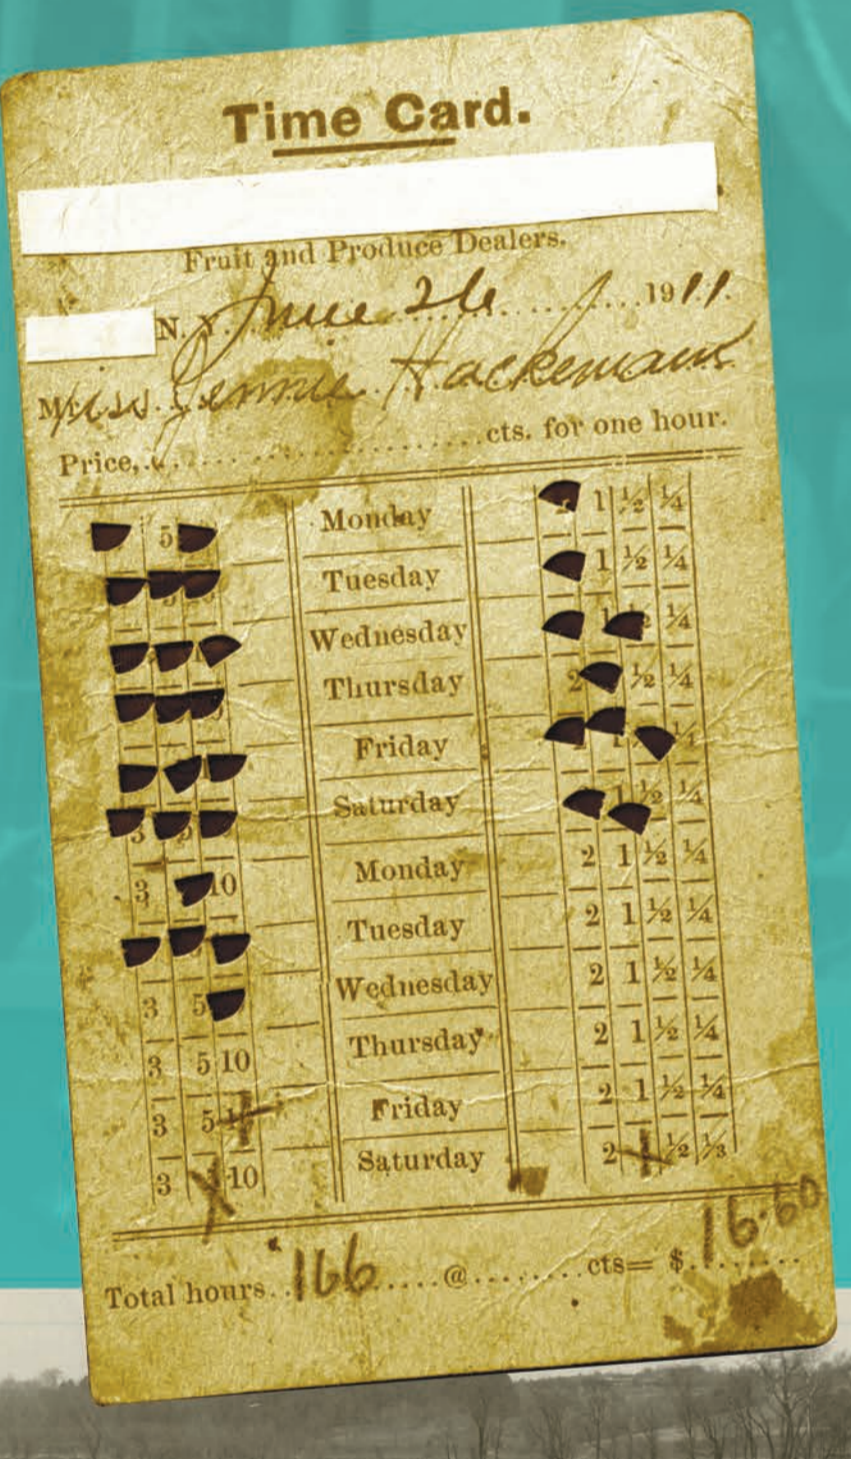 Time Card.
Fruit and Produce Dealers.
N. Y. June 26 1911.
Miss. Jennie Hackemann
Price,........................cts. for one hour.
5 Monday 1 ½ ¼
Tuesday 1 ½ ¼
Wednesday ¼
Thursday 2 ½ ¼
Friday
3 Saturday 1 ½ ¼
3 10 Monday 2 1 ½ ¼
Tuesday 2 1 ½ ¼
3 5 Wednesday 2 1 ½ ¼
3 5 10 Thursday 2 1 ½ ¼
3 5 Friday 2 1 ½ ¼
3 10 Saturday 2 ½ ⅓
Total hours..166.....@........cts= $.16.60